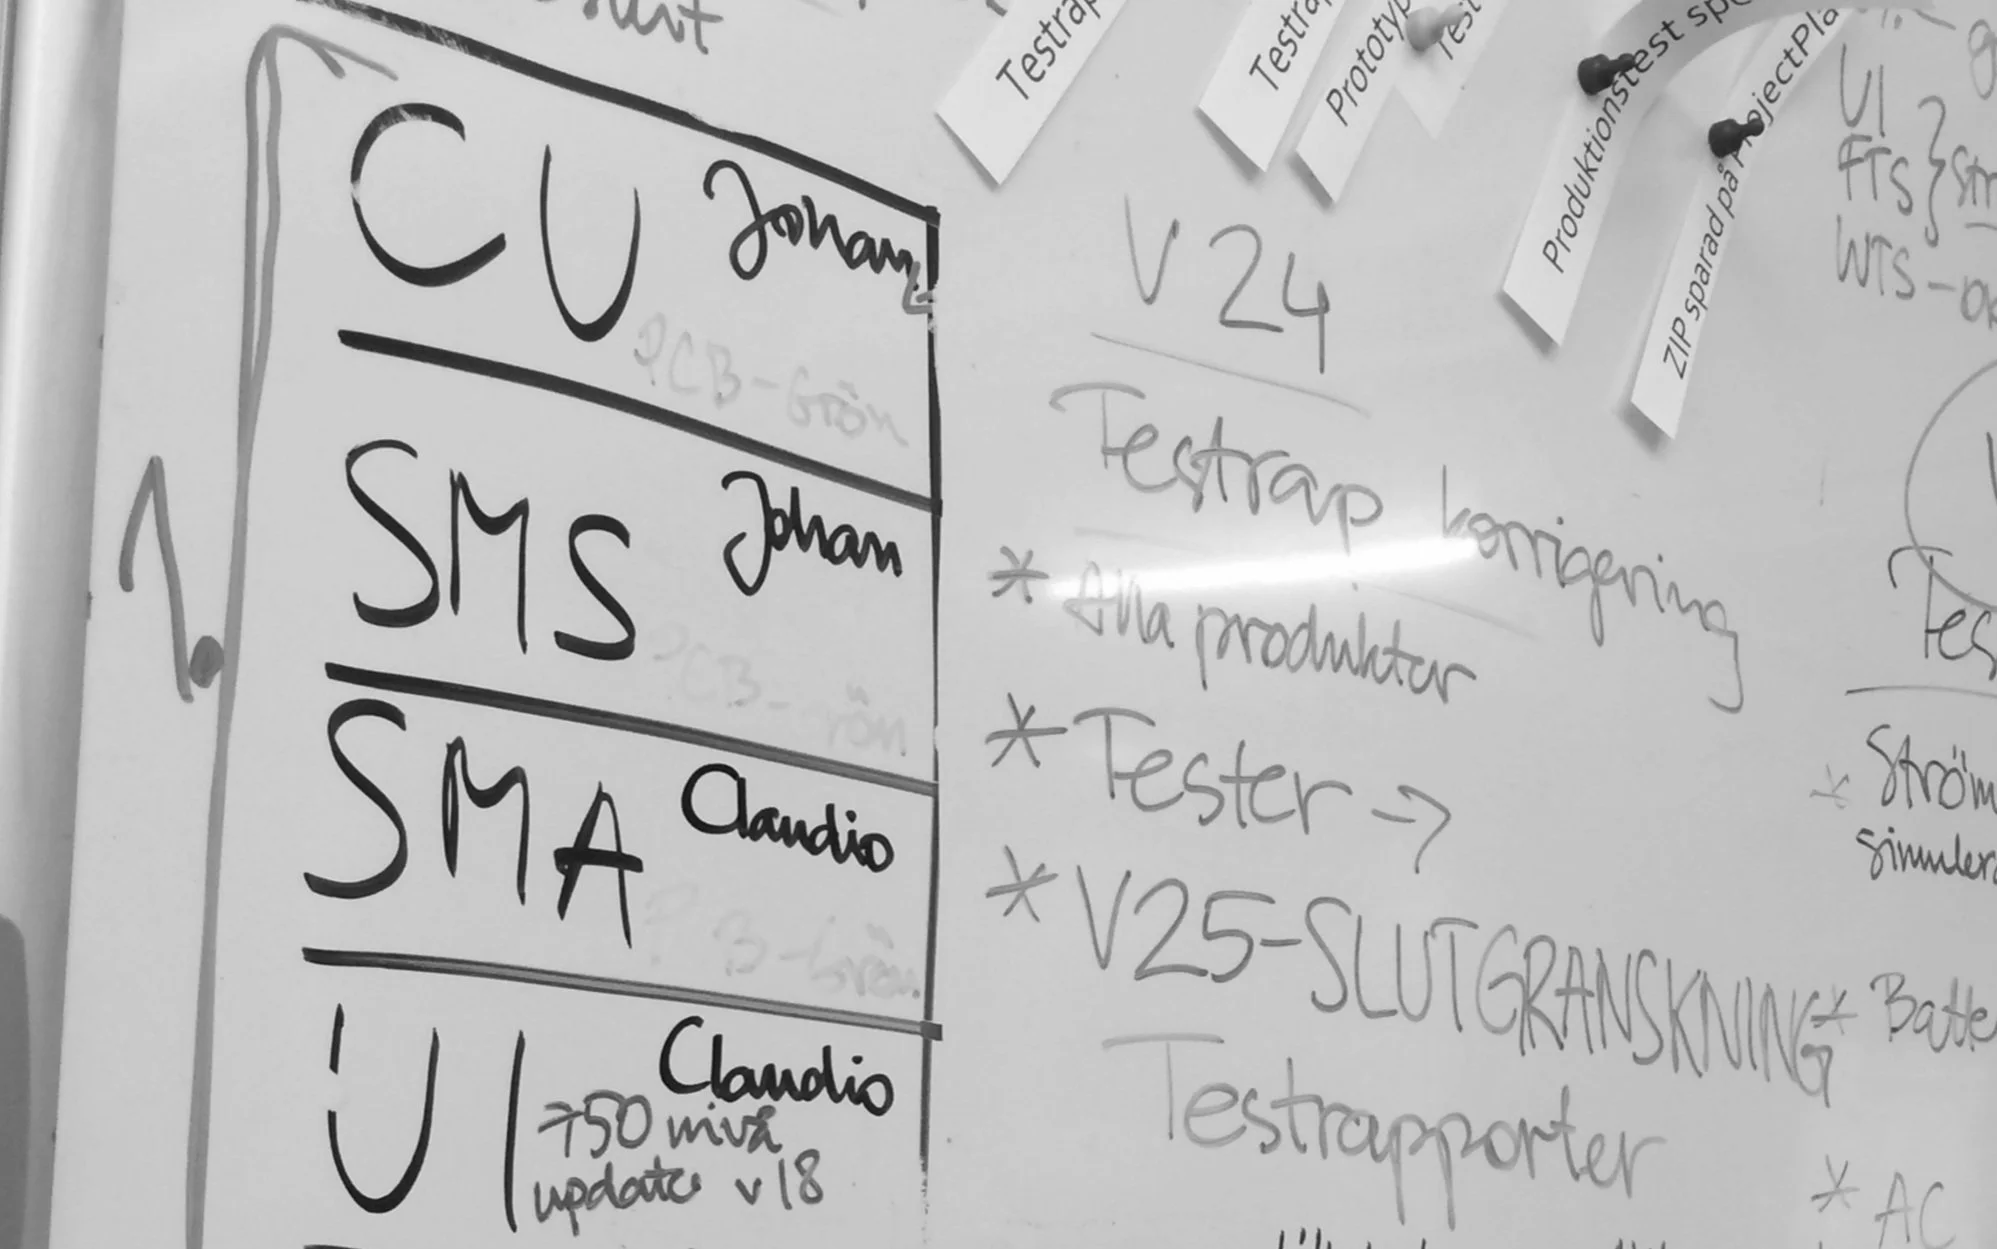 Testrap
Testra
Prototyp
Test
Produktionstest sp
ZIP sparad på ProjectPla
UI
FTS
WTS-
CU Johan
PCB-Grön
SMS Johan
PCB-rön
SMA Claudio
B-Grön
UI Claudio
→50 nivå
update v18
V24
Testrap korrigering
* Alla produkter
* Tester →
* V25-SLUTGRANSKNING
Testrapporter
Tes
* Ström
simulera
* Batte
* AC